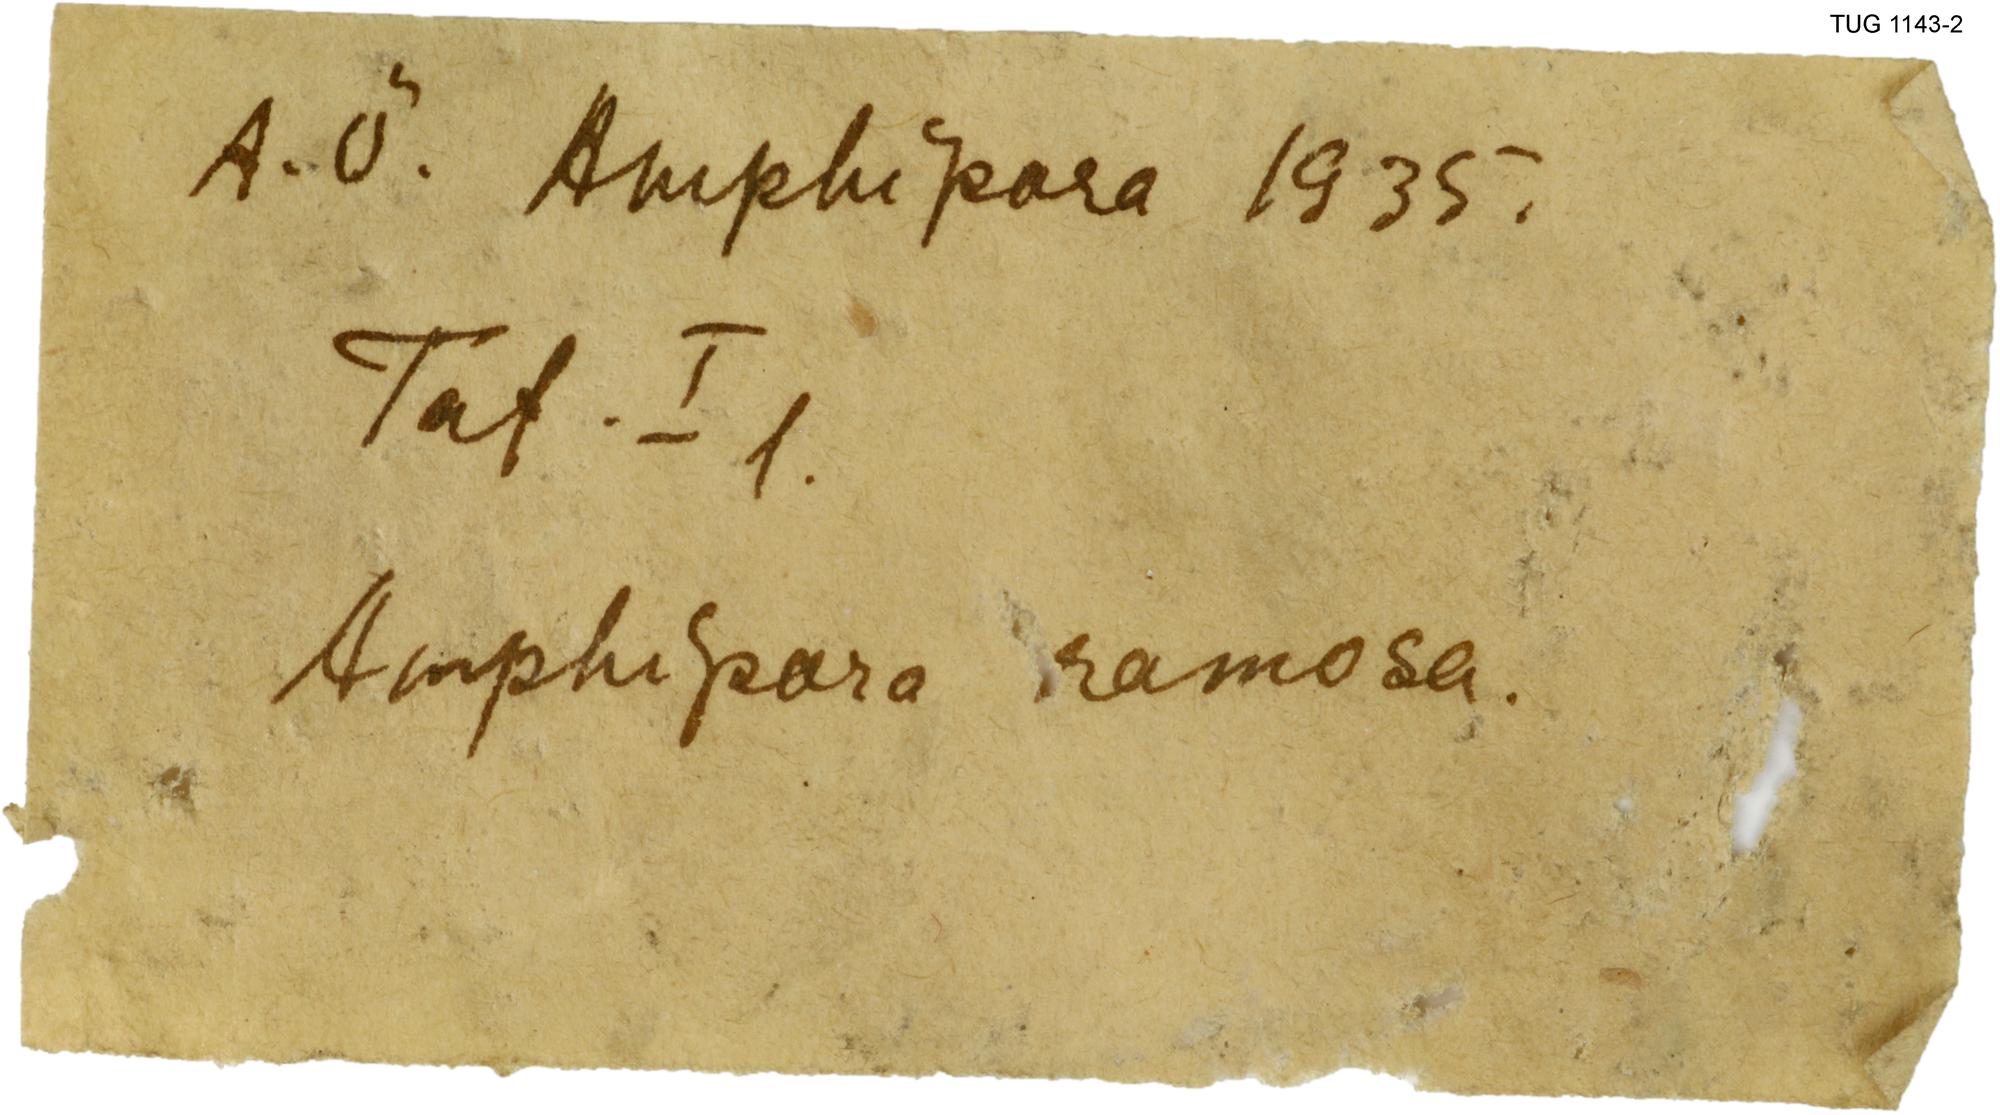 TUG 1143-2
A. Ö. Amphipora 1935.
Taf. I 1.
Amphipora ramosa.